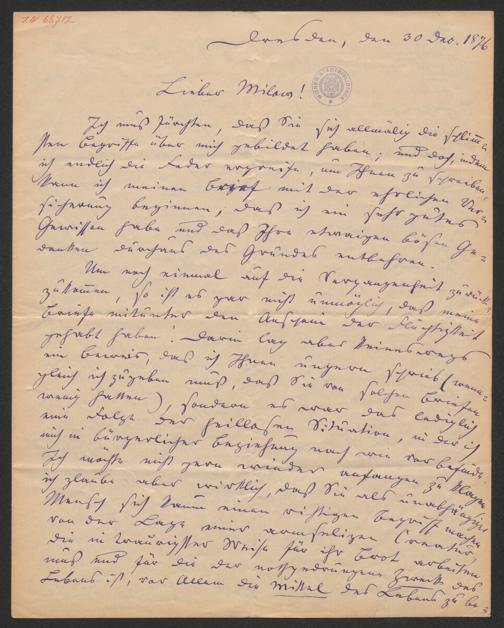 I.N. 68712
Dresden, den 30 Dec. 1876
Lieber Milow!
Ich muß fürchten, daß Sie sich allmälig die schlimm-
sten Begriffe über mich gebildet haben; und doch, indem
ich endlich die Feder ergreife, um Ihnen zu schreiben,
kann ich meinen Brief mit der ehrlichen Ver-
sicherung beginnen, daß ich ein sehr gutes
Gewissen habe und daß Ihre etwaigen bösen Ge-
danken durchaus des Grundes entbehren.
Um noch einmal auf die Vergangenheit zurück-
zukommen, so ist es gar nicht unmöglich, daß meine
Briefe mitunter den Anschein der Flüchtigkeit
gehabt haben. Darin lag aber keineswegs
ein Beweis, daß ich Ihnen ungern schrieb (wenn-
gleich ich zugeben muß, daß Sie von solchen Briefen
wenig hatten), sondern es war das lediglich
eine Folge der heillosen Situation, in der ich
mich in bürgerlicher Beziehung nach wie vor befinde.
Ich möchte nicht gern wieder anfangen zu klagen,
ich glaube aber wirklich, daß Sie als unabhängiger
Mensch sich kaum einen richtigen Begriff machen
von der Lage einer armseligen Creatur,
die in traurigster Weise für ihr Brot arbeiten
muß und für die der nothgedrungene Zweck des
Lebens ist, vor Allem die Mittel des Lebens zu be-